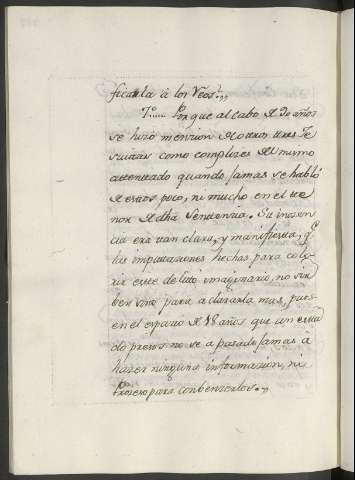 ficarla à los Reos.
7º..... Porque al cabo de 20 años
se hizo mencion de otros tres Je
suitas como complices del mismo
attentado quando jamas se habló
de estos poco, ni mucho en el te
nor de dha Sentencia. Su inosen
cia era tan clara, y manifiesta, q.e
las imputaciones hechas para colo
rir este delito imaginario, no sir
ben sino para aclararla mas, pues
en el espacio de 18 años que an estta
do presos no se a pasado jamas á
hazer ninguna informasion, ni
Proceso para conbenserlos.